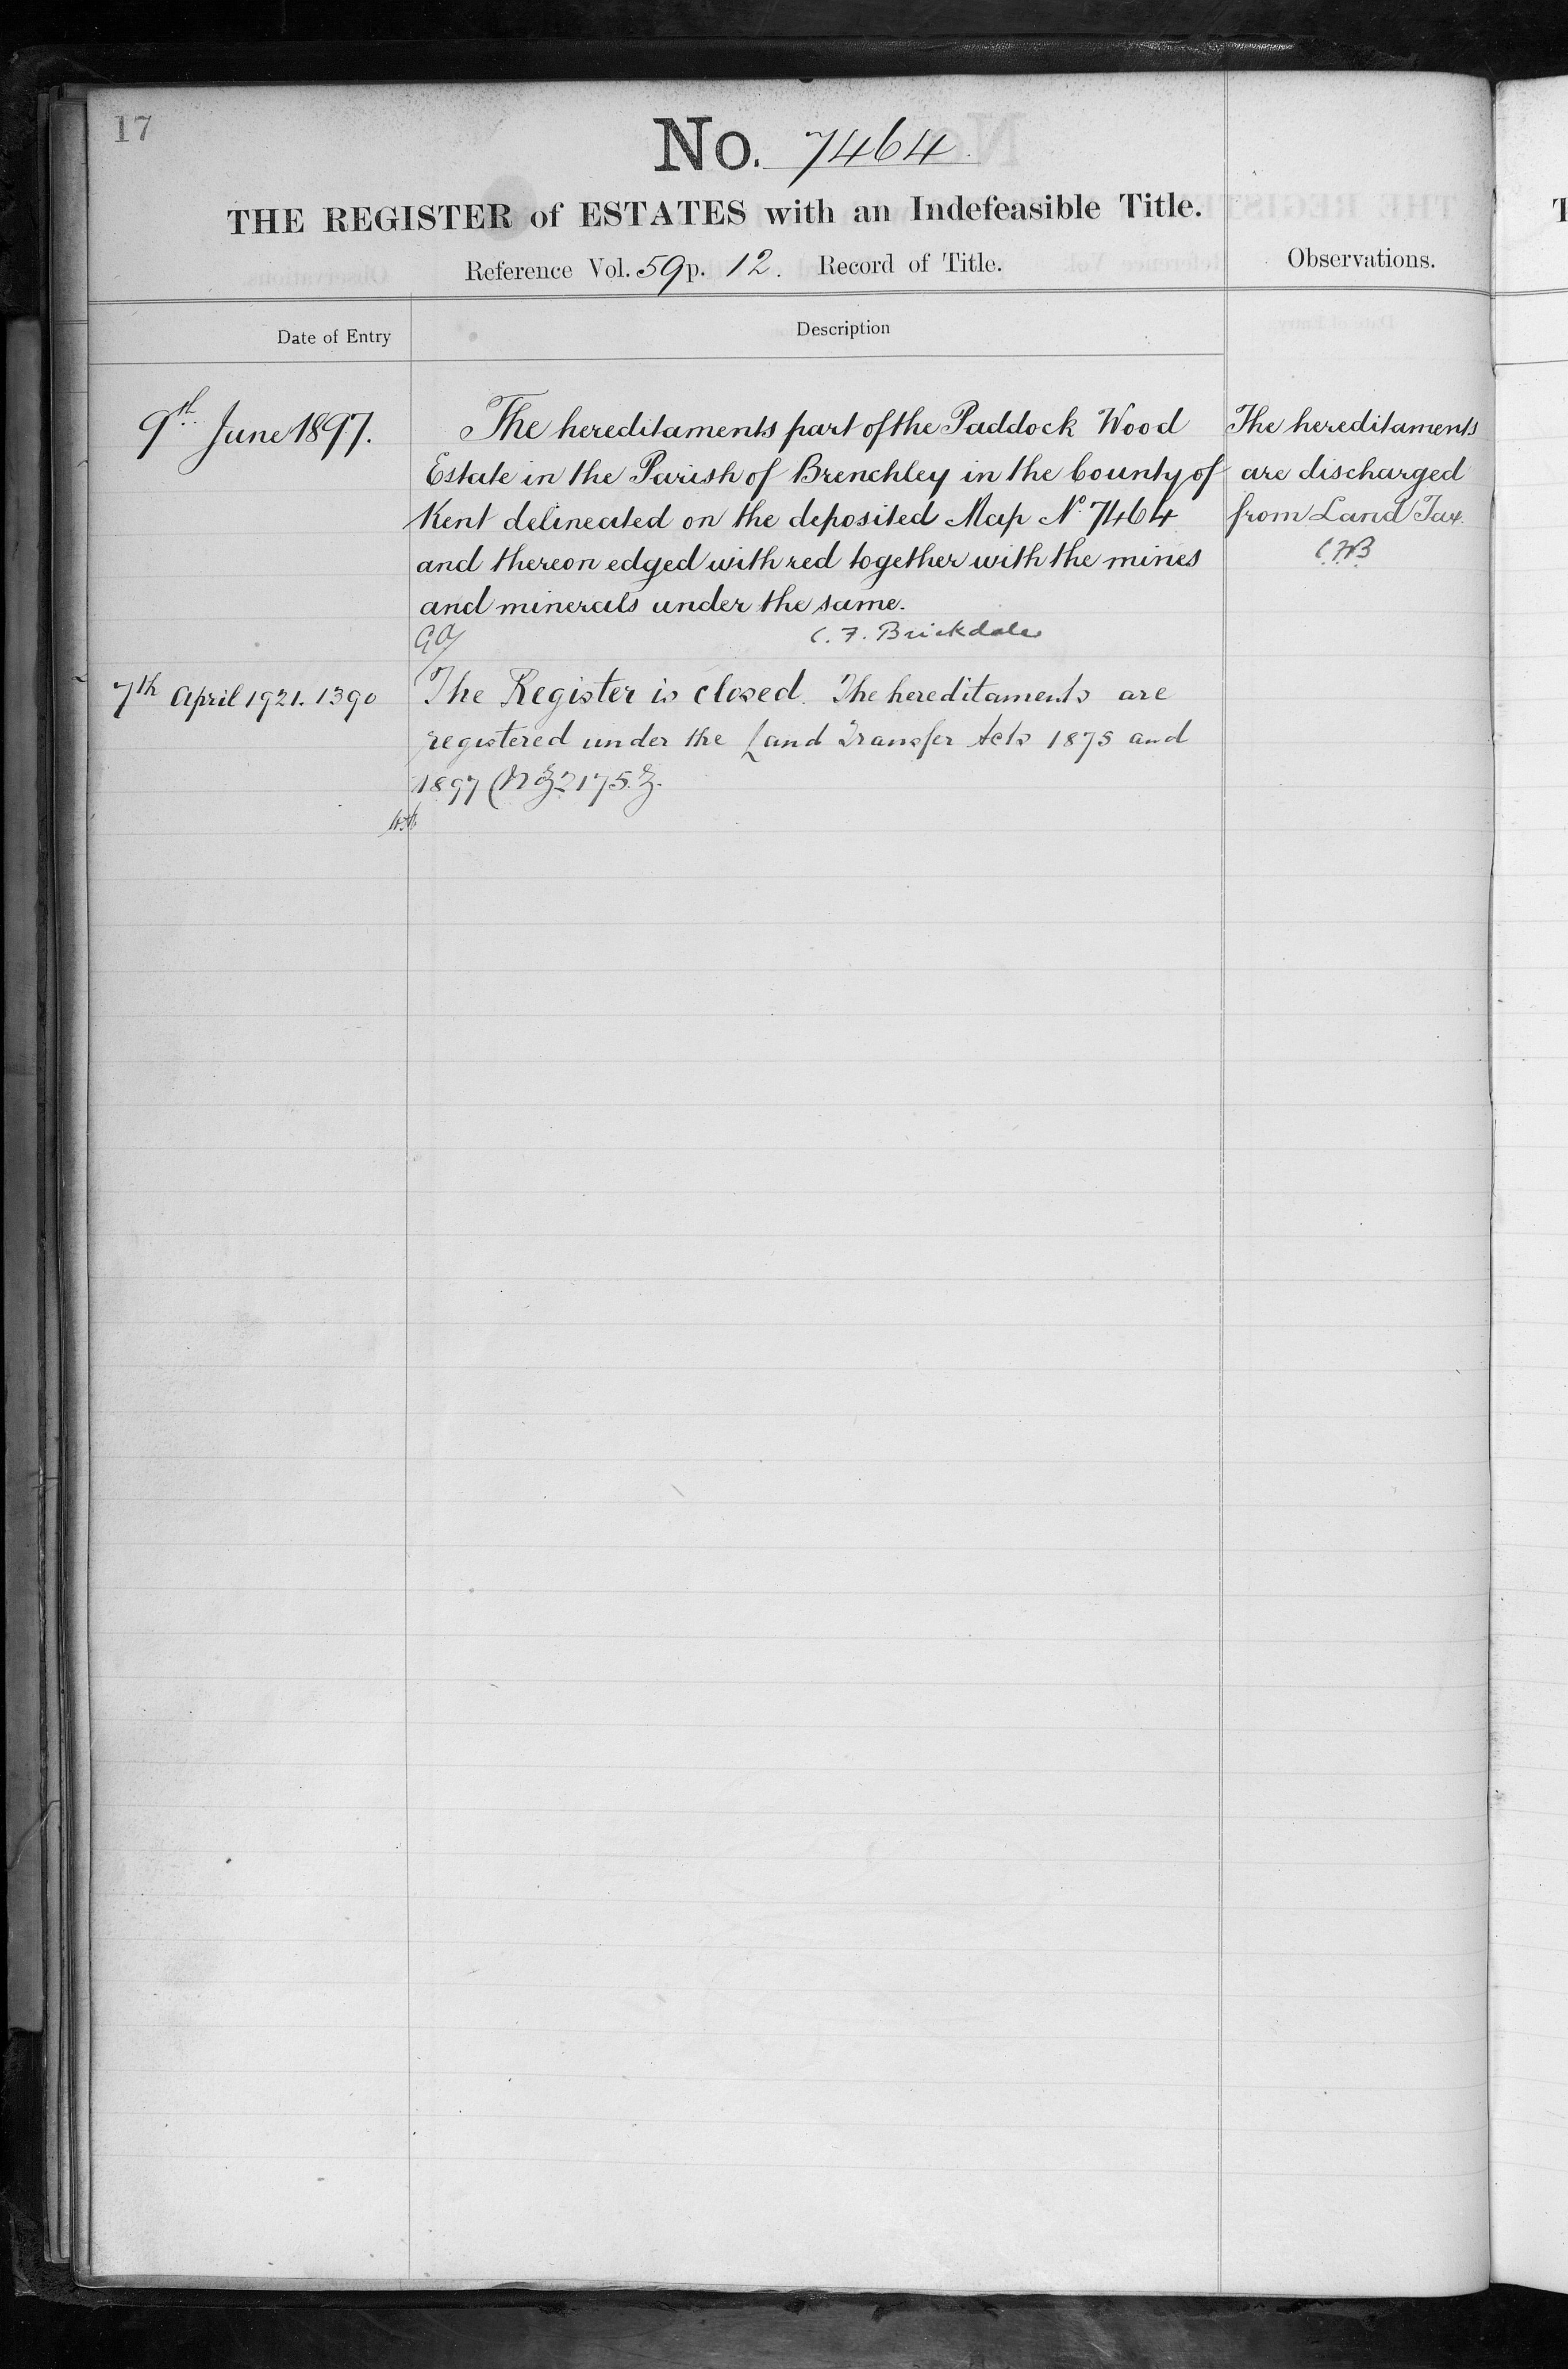 17
No. 7464
THE REGISTER of ESTATES with an Indefeasible Title.
Reference Vol. 59 p. 12. Record of Title.
Observations.
Date of Entry
Description
9th June 1897.
The hereditaments part of the Paddock Wood
Estate in the Parish of Brenchley in the County of
Kent delineated on the deposited Map No. 7464
and thereon edged with red together with the mines
and minerals under the same.
C. F. Brickdale
The hereditaments
are discharged
from Land Tax.
C.F.B.
7th April 1921. 1390
The Register is closed. The hereditaments are
registered under the Land Transfer Acts 1875 and
1897